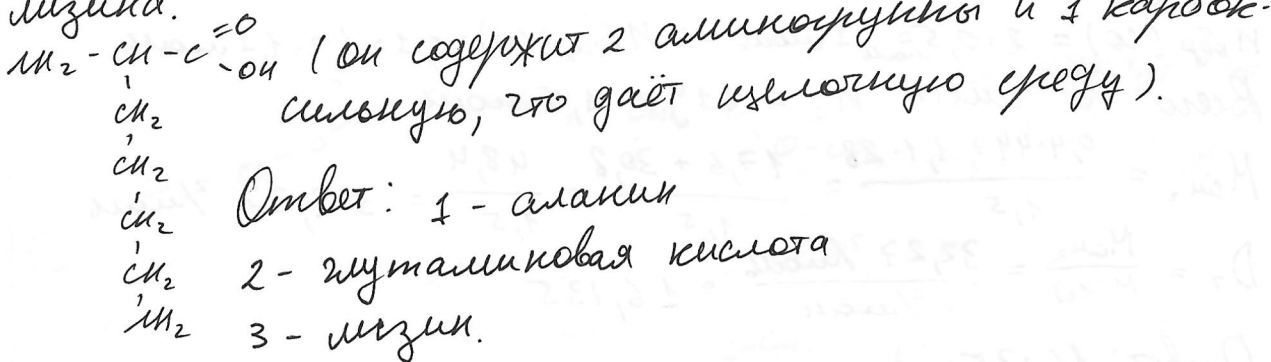 лизина.
NH₂ - CH - C =O
- OH (он содержит 2 аминогруппы и 1 карбок-
CH₂ сильную, что даёт щелочную среду).
CH₂
CH₂ Ответ: 1 - аланин
CH₂ 2 - глутаминовая кислота
NH₂ 3 - лизин.